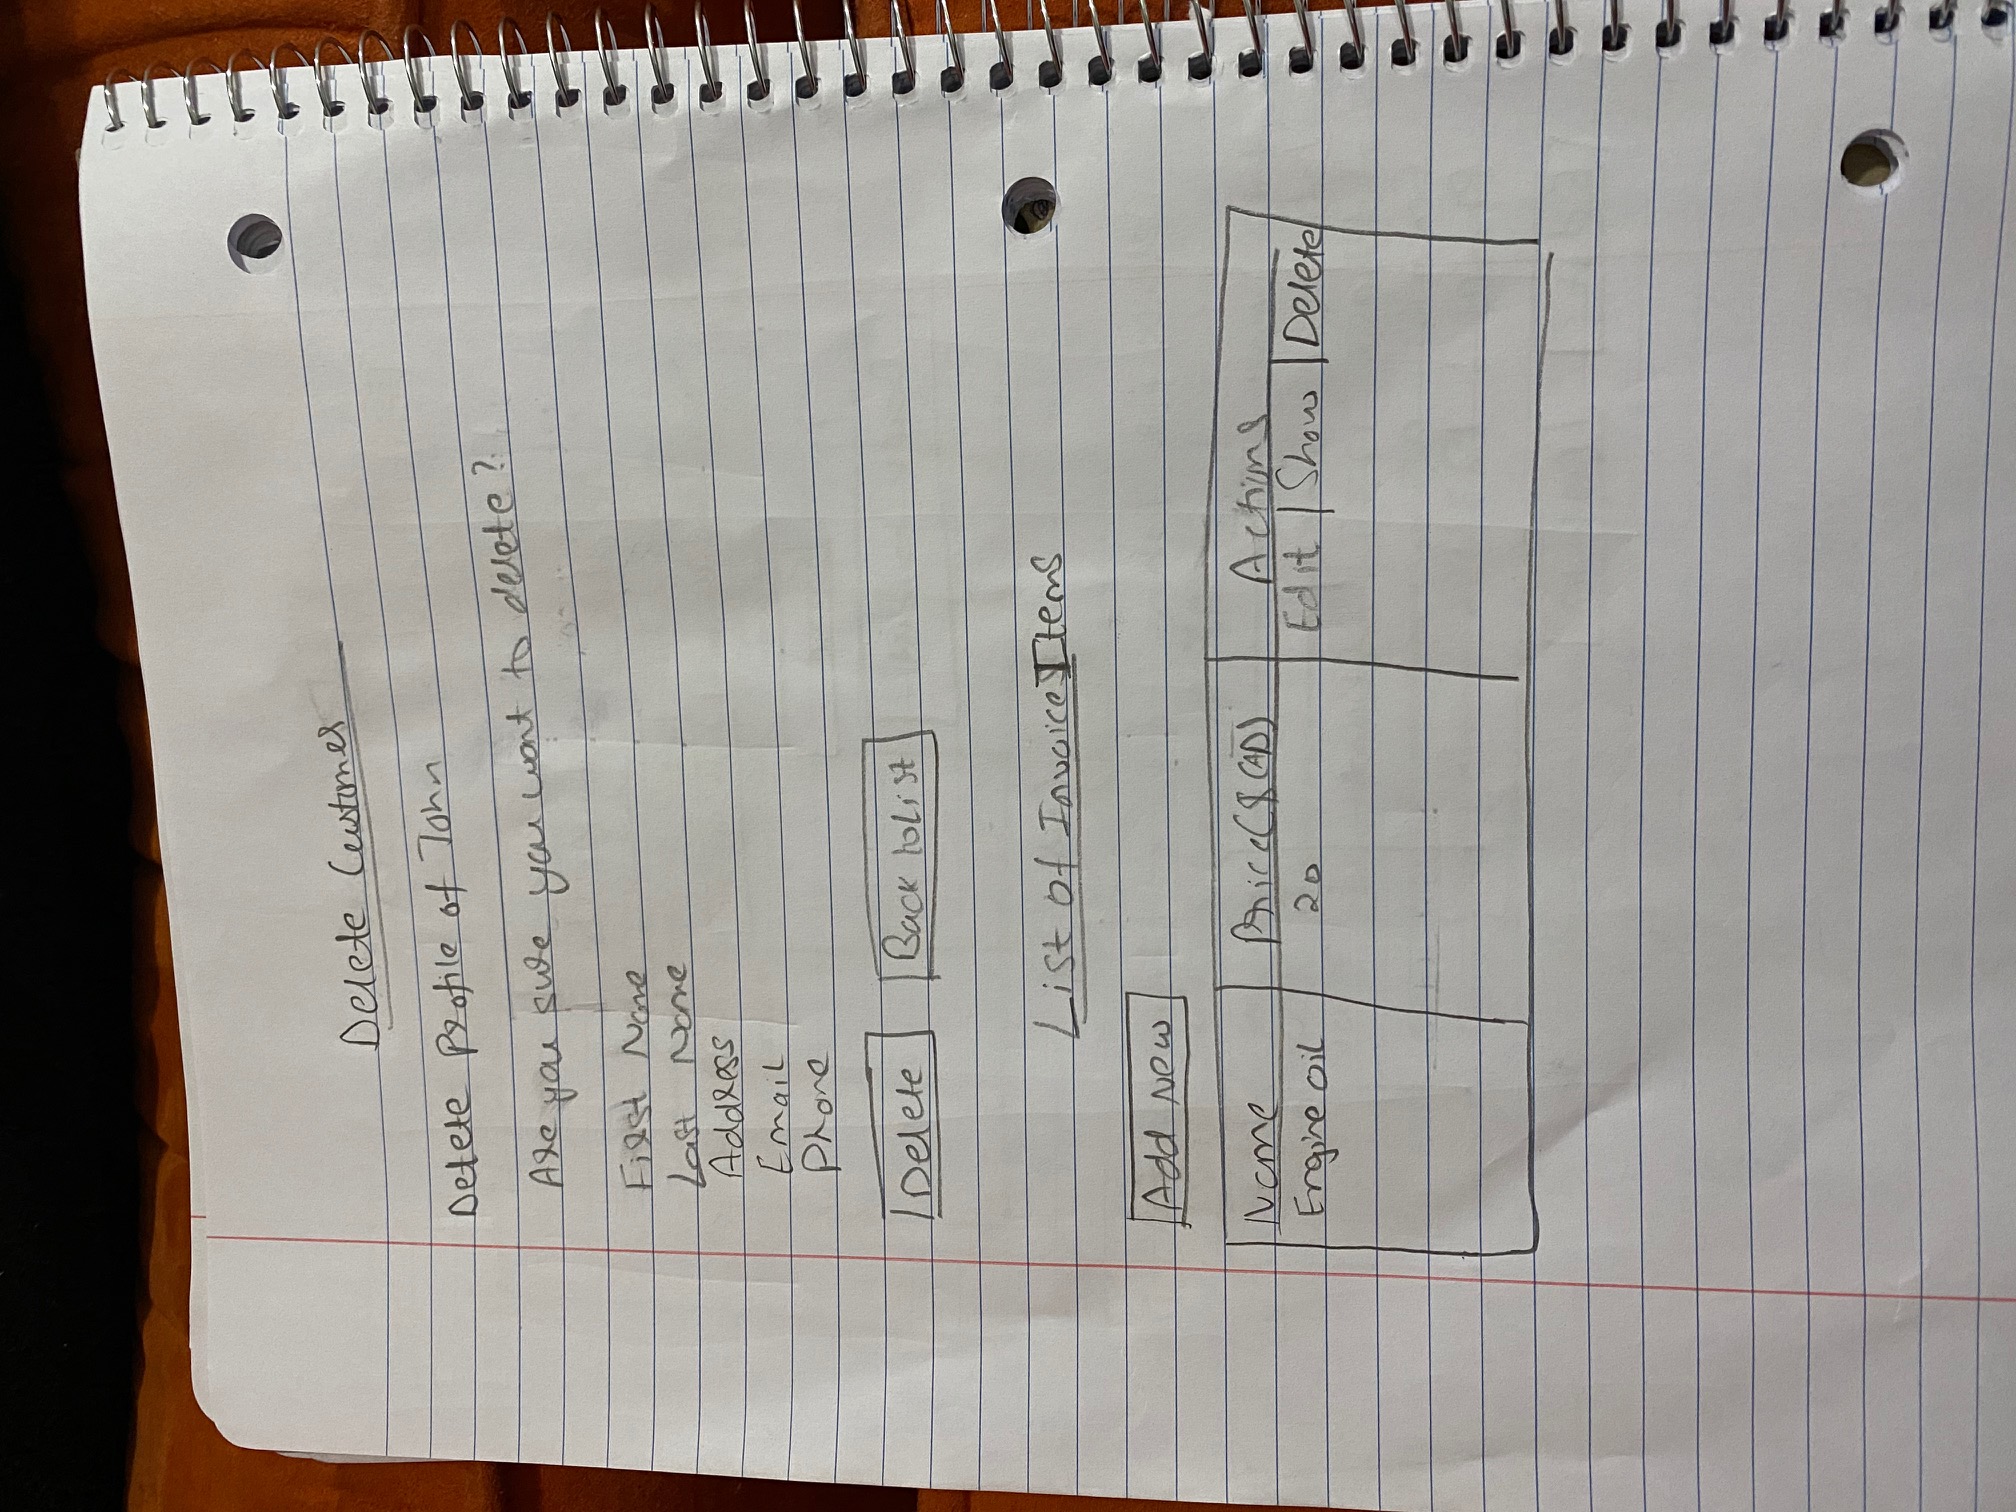 Delete Customer
Delete Profile of John
Are you sure you want to delete?
First Name
Last Name
Address
Email
Phone
Delete Back to List
List of Invoice Items
Add New
Name Price($CAD) Actions
Engine oil 20 Edit | Show | Delete